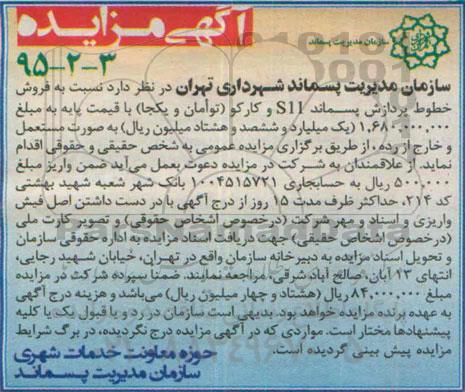 آگهی مزایده
سازمان مدیریت پسماند
۹۵-۲-۳
سازمان مدیریت پسماند شهرداری تهران در نظر دارد نسبت به فروش
خطوط پردازش پسماند S11 و کارکو (توأمان و یکجا) با قیمت پایه به مبلغ
۱,۶۸۰,۰۰۰,۰۰۰ (یک میلیارد و ششصد و هشتاد میلیون ریال) به صورت مستعمل
و خارج از رده، از طریق برگزاری مزایده عمومی به شخص حقیقی و حقوقی اقدام
نماید. از علاقمندان به شرکت در مزایده دعوت بعمل می‌آید ضمن واریز مبلغ
۵۰۰,۰۰۰ ریال به حسابجاری ۱۰۰۴۵۱۵۷۲۱ بانک شهر شعبه شهید بهشتی
کد ۲۱۴، حداکثر ظرف مدت ۱۵ روز از درج آگهی با در دست داشتن اصل فیش
واریزی و اسناد و مهر شرکت (درخصوص اشخاص حقوقی) و تصویر کارت ملی
(درخصوص اشخاص حقیقی) جهت دریافت اسناد مزایده به اداره حقوقی سازمان
و تحویل اسناد مزایده به دبیرخانه سازمان واقع در تهران، خیابان شهید رجایی،
انتهای ۱۳ آبان، صالح آباد شرقی، مراجعه نمایند. ضمنا سپرده شرکت در مزایده
مبلغ ۸۴,۰۰۰,۰۰۰ ریال (هشتاد و چهار میلیون ریال) می‌باشد و هزینه درج آگهی
به عهده برنده مزایده خواهد بود. بدیهی است سازمان در رد و یا قبول یک یا کلیه
پیشنهادها مختار است. مواردی که در آگهی مزایده درج نگردیده، در برگ شرایط
مزایده پیش بینی گردیده است.
حوزه معاونت خدمات شهری
سازمان مدیریت پسماند